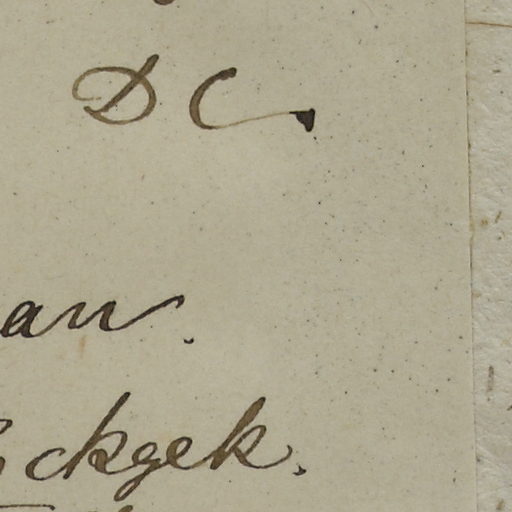 D C
an.
ckgek.